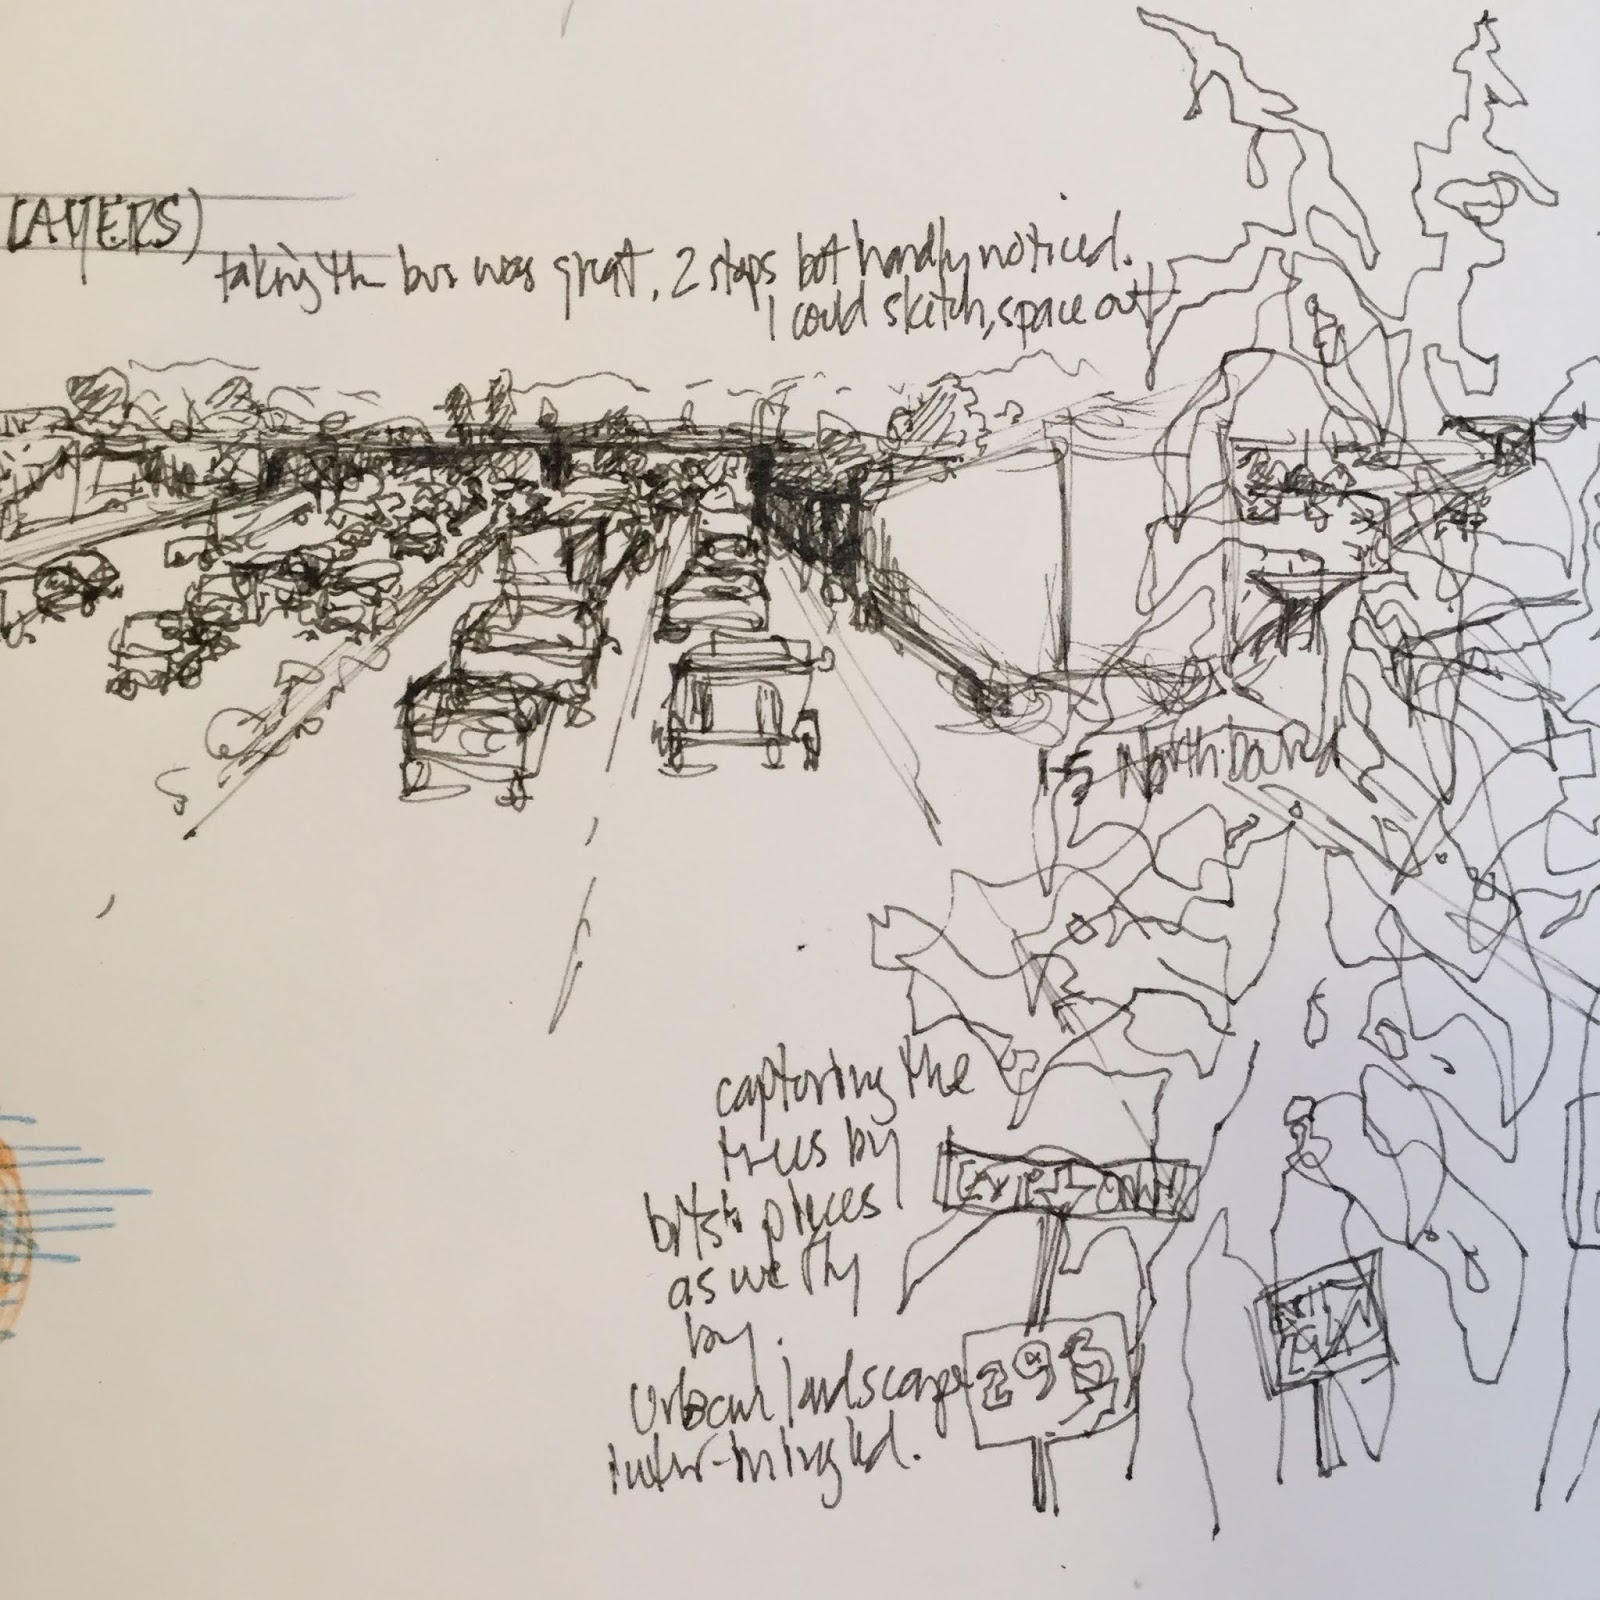 LAYERS)
taking the bus was great, 2 stops but hardly noticed.
I could sketch, space out
I-5 Northbound
capturing the
trees by
bits & pieces
as we fly
by.
Urban landscape
inter-mingled.
EXIT ONLY
295